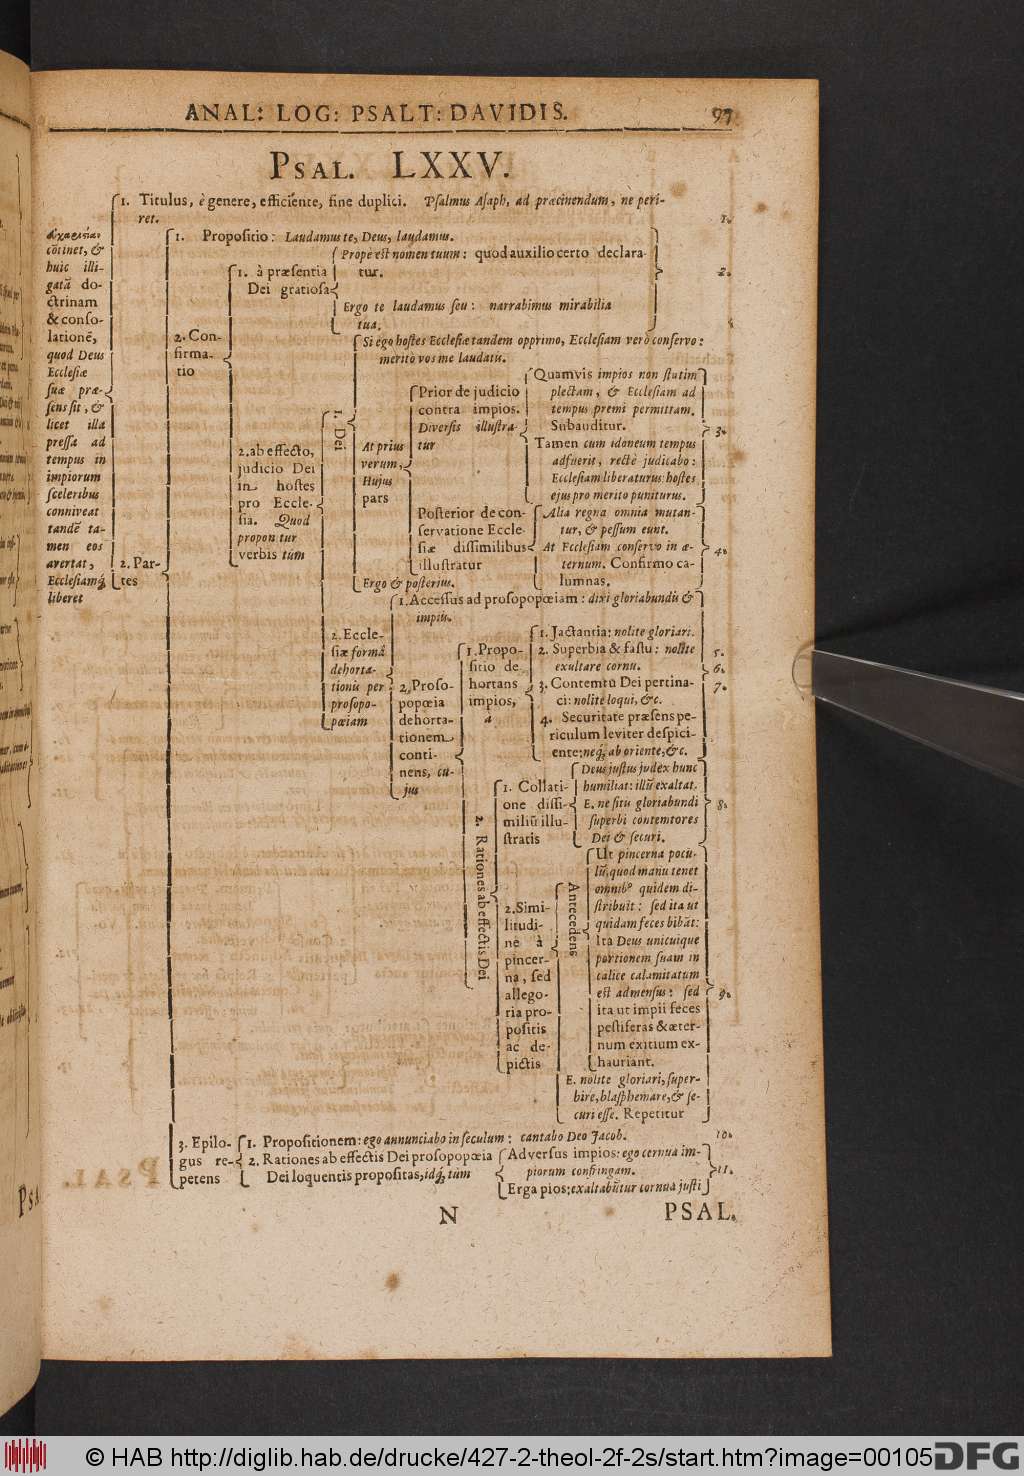 ANAL: LOG: PSALT: DAVIDIS.
97
PSAL. LXXV.
1. Titulus, è genere, efficiente, fine duplici. Psalmus Asaph, ad præcinendum, nè peri-
ret.
1.
cõtinet, &
huic illi-
gatã do-
ctrinam
& conso-
lationẽ,
quod Deus
Ecclesiæ
suæ præ-
sens sit, &
licet illa
pressa ad
tempus in
impiorum
sceleribus
conniveat
tandẽ ta-
men eos
avertat,
Ecclesiamq́;
liberet
2. Par-
tes
1. Propositio: Laudamus te, Deus, laudamus.
2. Con-
firma-
tio
1. à præsentia
Dei gratiosa
Prope est nomen tuum: quod auxilio certo declara-
tur.
2.
Ergo te laudamus seu: narrabimus mirabilia
tua.
2. ab effecto,
judicio Dei
in hostes
pro Eccle-
sia. Quod
proponitur
verbis tùm
1. Dei
Si ego hostes Ecclesiæ tandem opprimo, Ecclesiam verò conservo:
meritò vos me laudatis.
At prius
verum,
Hujus
pars
Prior de judicio
contra impios.
Diversis illustra-
tur
Quamvis impios non statim
plectam, & Ecclesiam ad
tempus premi permittam.
Subauditur.
Tamen cum idoneum tempus
adfuerit, rectè judicabo:
Ecclesiam liberaturus hostes
ejus pro merito puniturus.
3.
Posterior de con-
servatione Eccle-
siæ dissimilibus
illustratur
Alia regna omnia mutan-
tur, & pessum eunt.
At Ecclesiam conservo in æ-
ternum. Confirmo ca-
lumnas.
4.
Ergo & posterius.
2. Eccle-
siæ formâ
dehorta-
tionis per
prosopo-
pœiam
1. Accessus ad prosopopœiam: dixi gloriabundis &
impiis.
2. Proso-
popœia
dehorta-
tionem
conti-
nens, cu-
jus
1. Propo-
sitio de-
hortans
impios,
a
1. Jactantia: nolite gloriari.
2. Superbia & fastu: nolite
exultare cornu.
3. Contemtu Dei pertina-
ci: nolite loqui, &c.
4. Securitate præsens pe-
riculum leviter despici-
ente: neq́; ab oriente, &c.
5.
6.
7.
2. Rationes ab effectis Dei
1. Collati-
one dissi-
miliũ illu-
stratis
Deus justus judex hunc
humiliat: illũ exaltat.
E. ne sitis gloriabundi
superbi contemtores
Dei & securi.
8.
2. Simi-
litudi-
ne à
pincer-
na, sed
allego-
ria pro-
positis
ac de-
pictis
Antecedens
Ut pincerna pocu-
lũ, quod manu tenet
omnibꝰ quidem di-
stribuit: sed ita ut
quidam feces bibãt:
Ita Deus unicuique
portionem suam in
calice calamitatum
est admensus: sed
ita ut impii feces
pestiferas & æter-
num exitium ex-
hauriant.
9.
E. nolite gloriari, super-
bire, blasphemare, & se-
curi esse. Repetitur
3. Epilo-
gus re-
petens
1. Propositionem: ego annunciabo in seculum: cantabo Deo Jacob.
10.
2. Rationes ab effectis Dei prosopopœia
Dei loquentis propositas, idq́; tùm
Adversus impios: ego cernua im-
piorum confringam.
Erga pios: exaltabũtur cornua justi
11.
N
PSAL.
© HAB http://diglib.hab.de/drucke/427-2-theol-2f-2s/start.htm?image=00105
DFG